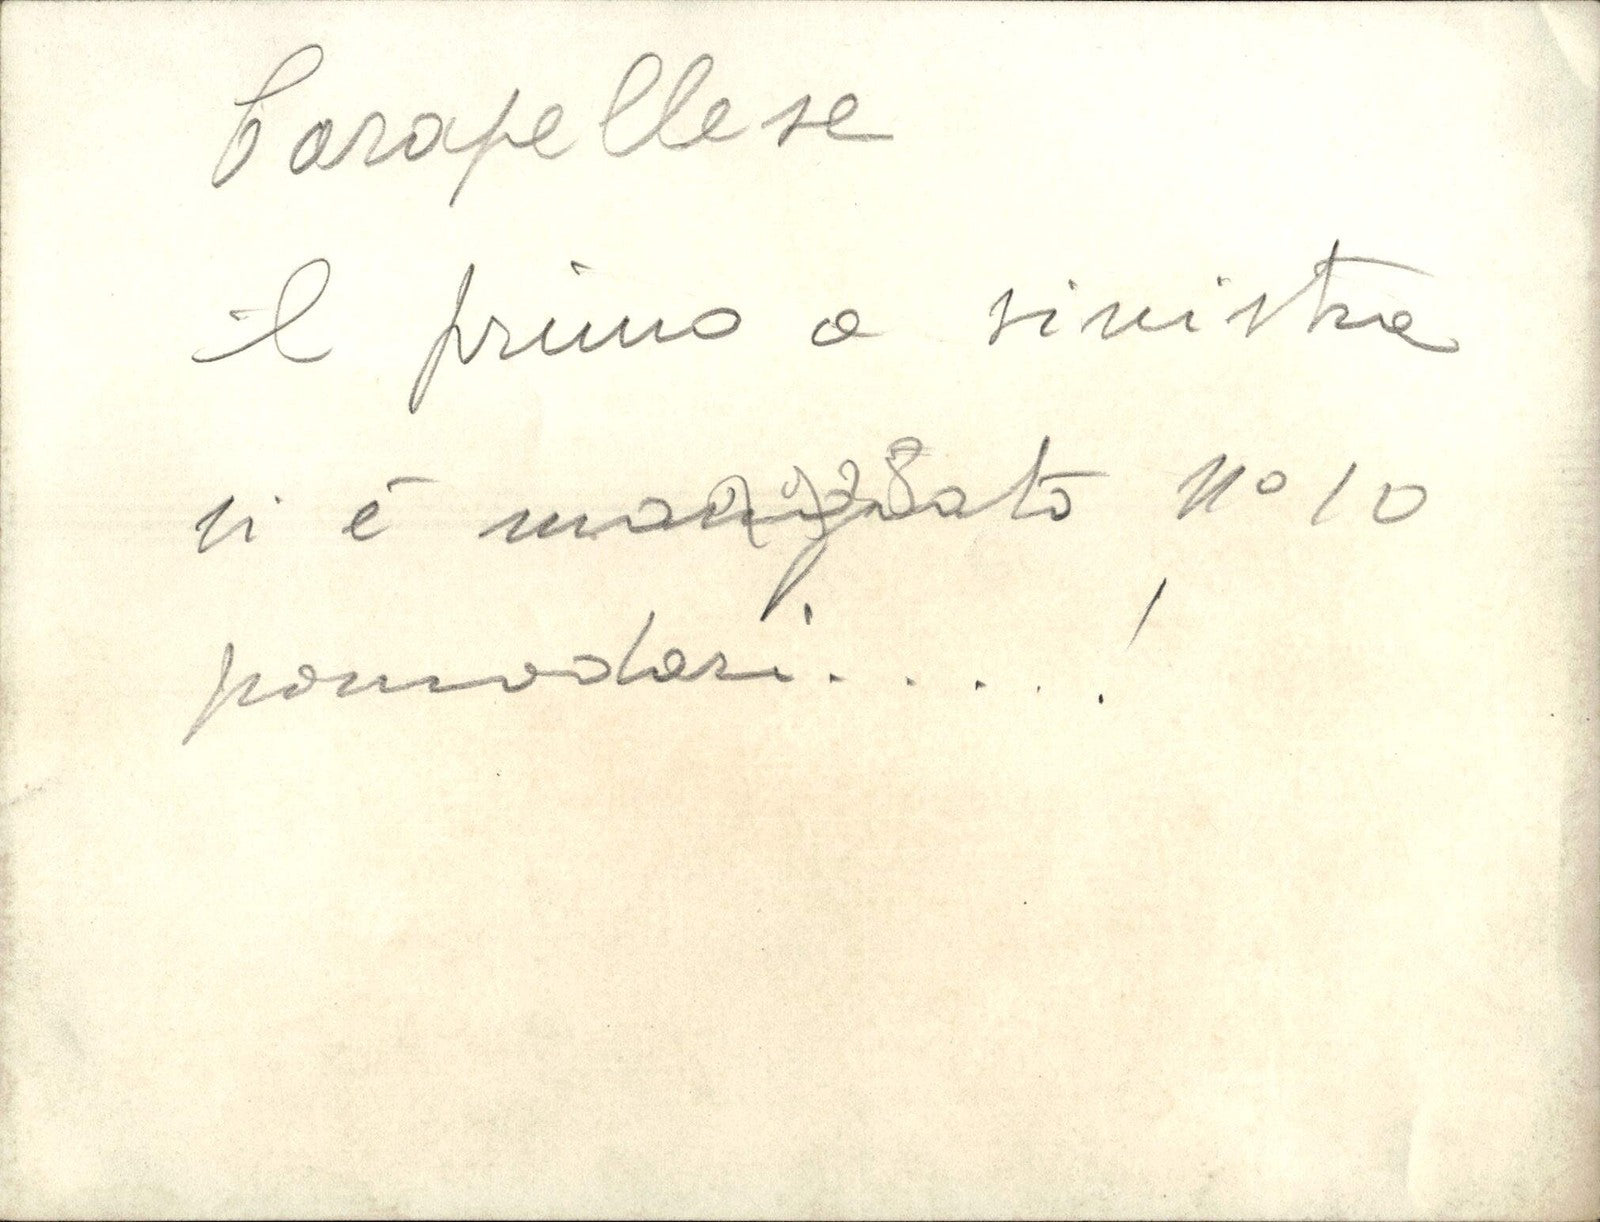 Carapellese
il primo a sinistra
si è mangiato N° 10
pomodori.....!